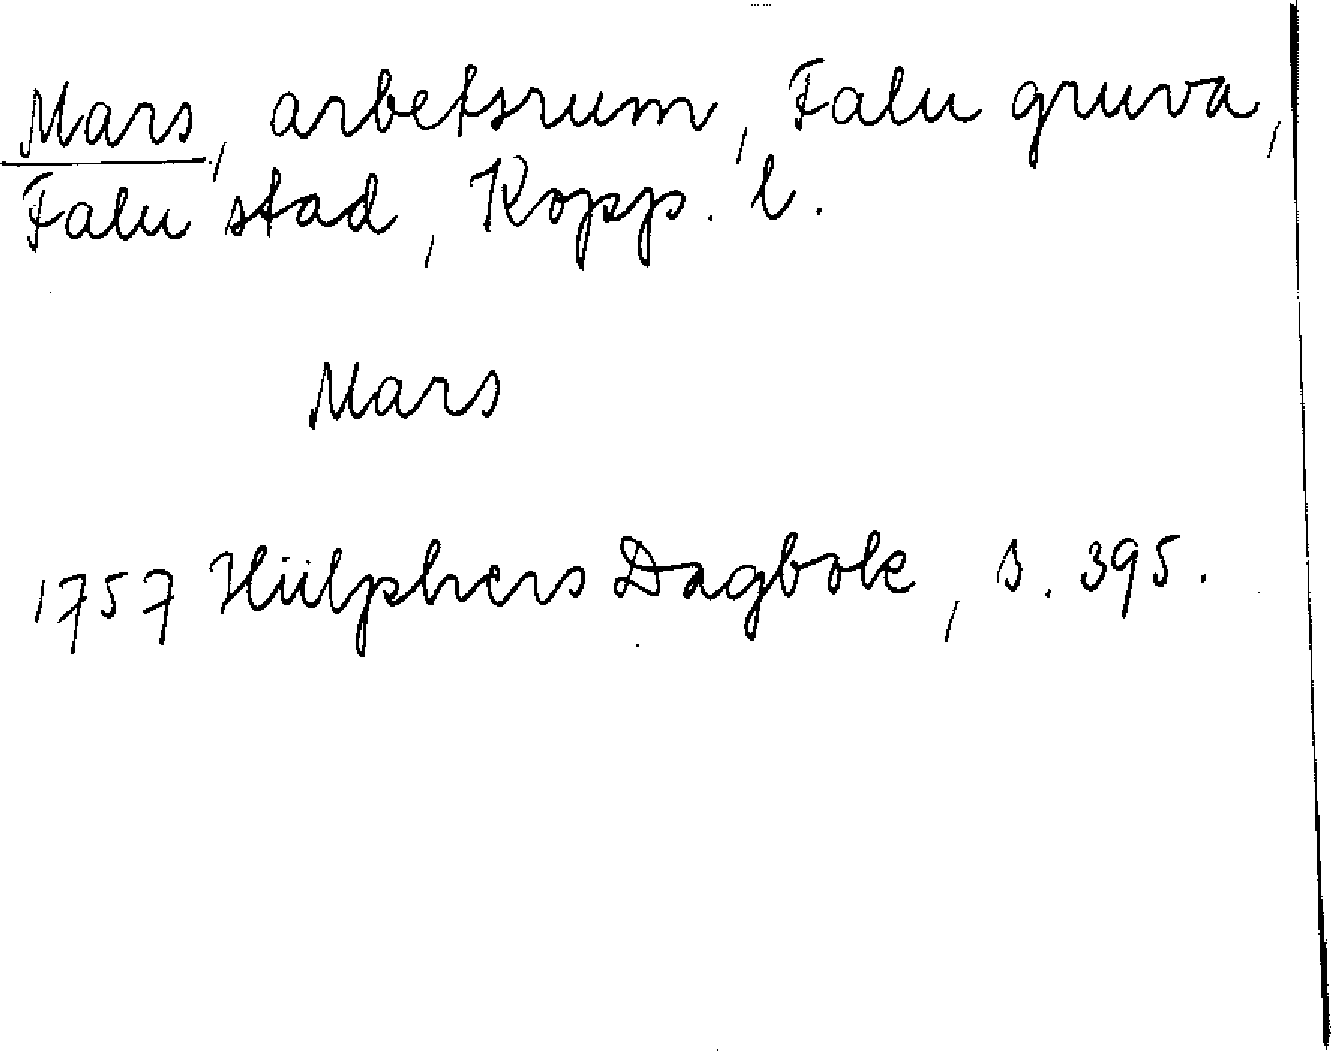 Mars, arbetsrum, Falu gruva,
Falu stad, Kopp. l.
Mars
1757 Hülphers Dagbok, s. 395.